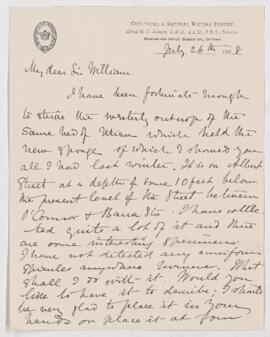 GEOLOGICAL & NATURAL HISTORY SURVEY.
Alfred R. C. Selwyn, C.M.G., L.L.D., F.R.S., Director
MUSEUM AND OFFICE, SUSSEX ST., OTTAWA.
July 26th 1888
My dear Sir William
I have been fortunate enough
to strike the westerly outcrop of the
same bed of Utica which held the
new sponge of which I showed you
all I had last winter. It is on Albert
Street at a depth of some 10 feet below
the present level of the Street between
O'Connor & Bank Sts. I have collec
ted quite a lot of it and there
are some interesting specimens.
I have not detected any
spicules anywhere however. What
shall I do with it. Would you
like to have it to describe; I should
be very glad to place it in your
hands or place it at your